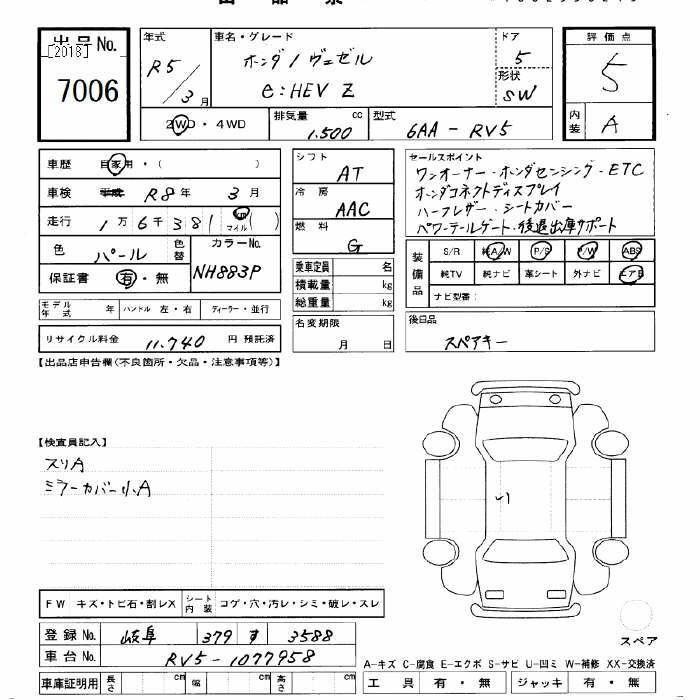 出品No. [2018]
7006
年式 R5/3月
車名・グレード ホンダ/ヴェゼル
e:HEV Z
ドア 5
形状 SW
評価点 5
内装 A
2WD・4WD
排気量 1.500 cc
型式 6AA-RV5
車歴 自家用・( )
車検 R8年 3月
走行 1万6千381 km マイル ( )
色 パール 色替
カラーNo. NH883P
保証書 有・無
モデル年式 年 ハンドル 左・右 ディーラー・並行
リサイクル料金 11.740 円 預託済
シフト AT
冷房 AAC
燃料 G
乗車定員 名
積載量 kg
総重量 kg
名変期限 月 日
セールスポイント
ワンオーナー・ホンダセンシング・ETC
ホンダコネクトディスプレイ
ハーフレザー・シートカバー
パワーテールゲート・後退出庫サポート
装備品 S/R 純A/W P/S P/W ABS
純TV 純ナビ 革シート 外ナビ エアB
ナビ型番:
後日品
スペアキー
【出品店申告欄(不良箇所・欠品・注意事項等)】
【検査員記入】
スリA
ミラーカバー小A
FW キズ・トビ石・割レX シート内装 コゲ・穴・汚レ・シミ・破レ・スレ
登録No. 岐阜 379 す 3588
車台No. RV5-1077958
車庫証明用 長さ cm 幅 cm 高さ cm
スペア
A-キズ C-腐食 E-エクボ S-サビ U-凹ミ W-補修 XX-交換済
工具 有・無 ジャッキ 有・無